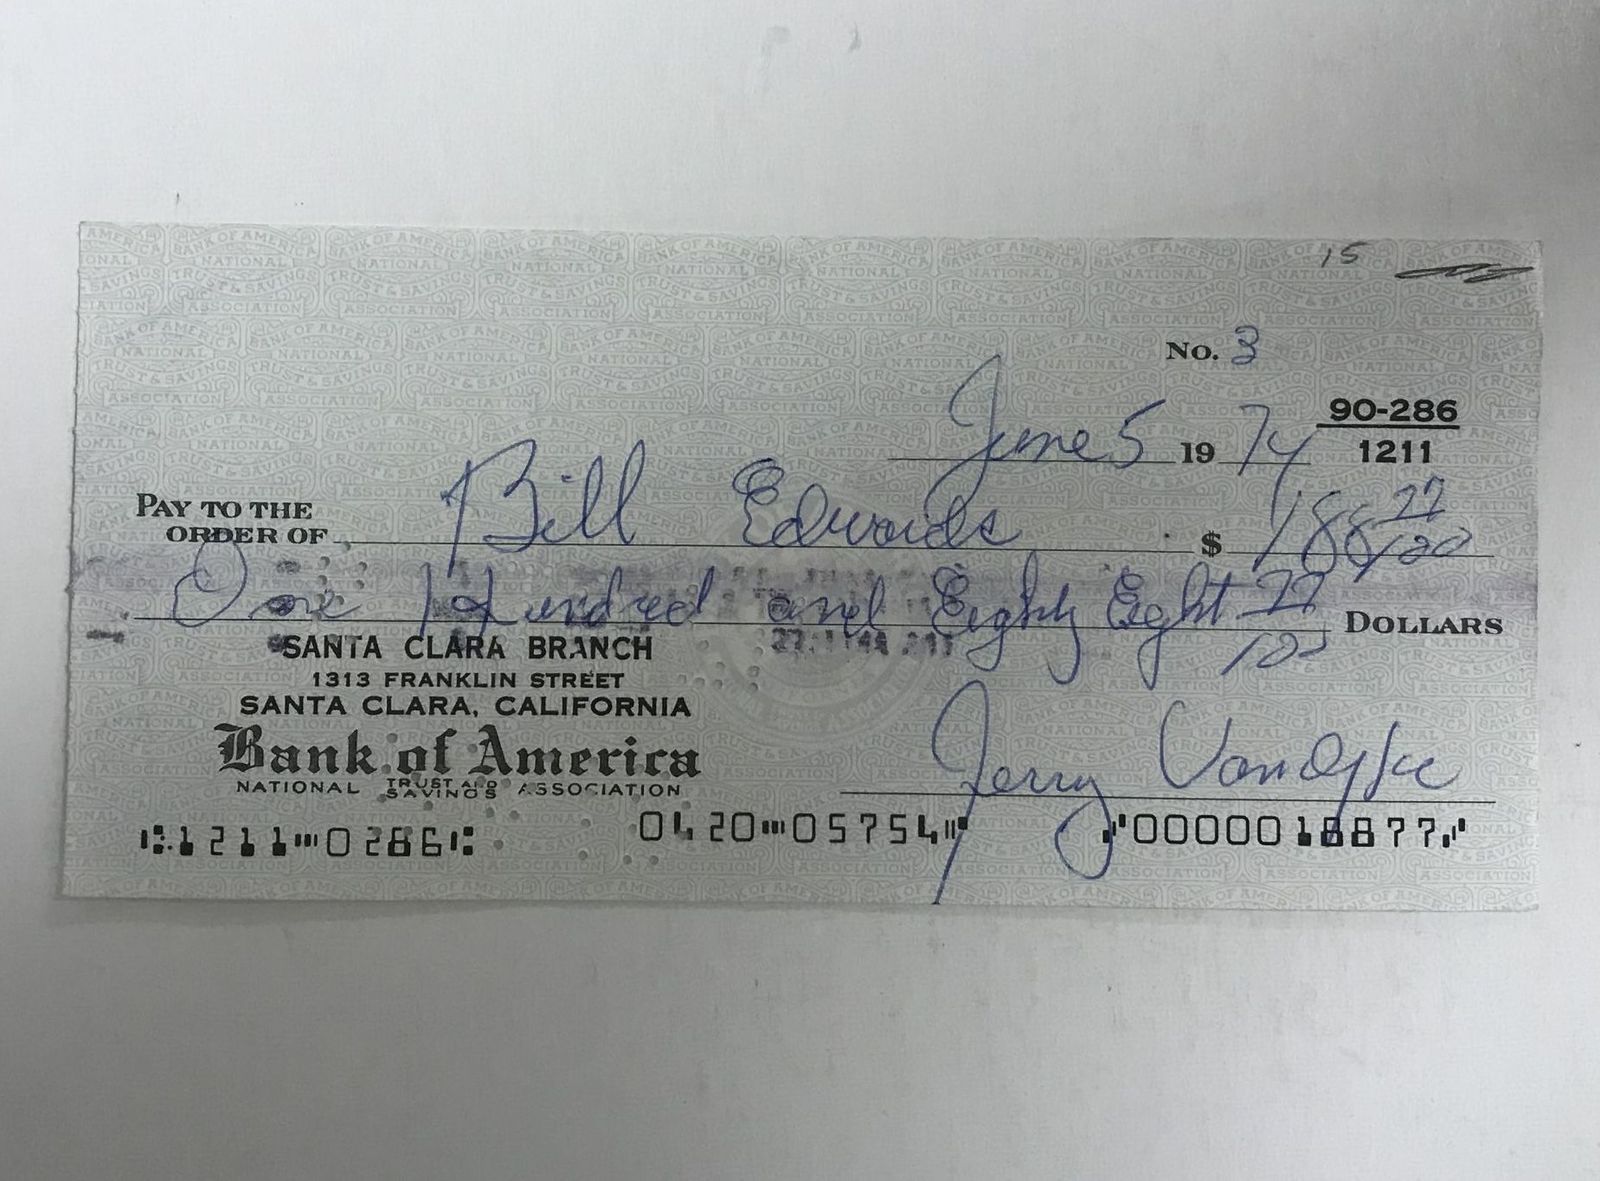 15
No. 3
90-286
June 5 19 74
1211
PAY TO THE
ORDER OF Bill Edwards $ 188 77/100
One Hundred and Eighty Eight 77/100 DOLLARS
SANTA CLARA BRANCH
1313 FRANKLIN STREET
SANTA CLARA, CALIFORNIA
Bank of America
NATIONAL TRUST AND SAVINGS ASSOCIATION
Jerry Vandyke
1211 0286 0420 05754 0000018877